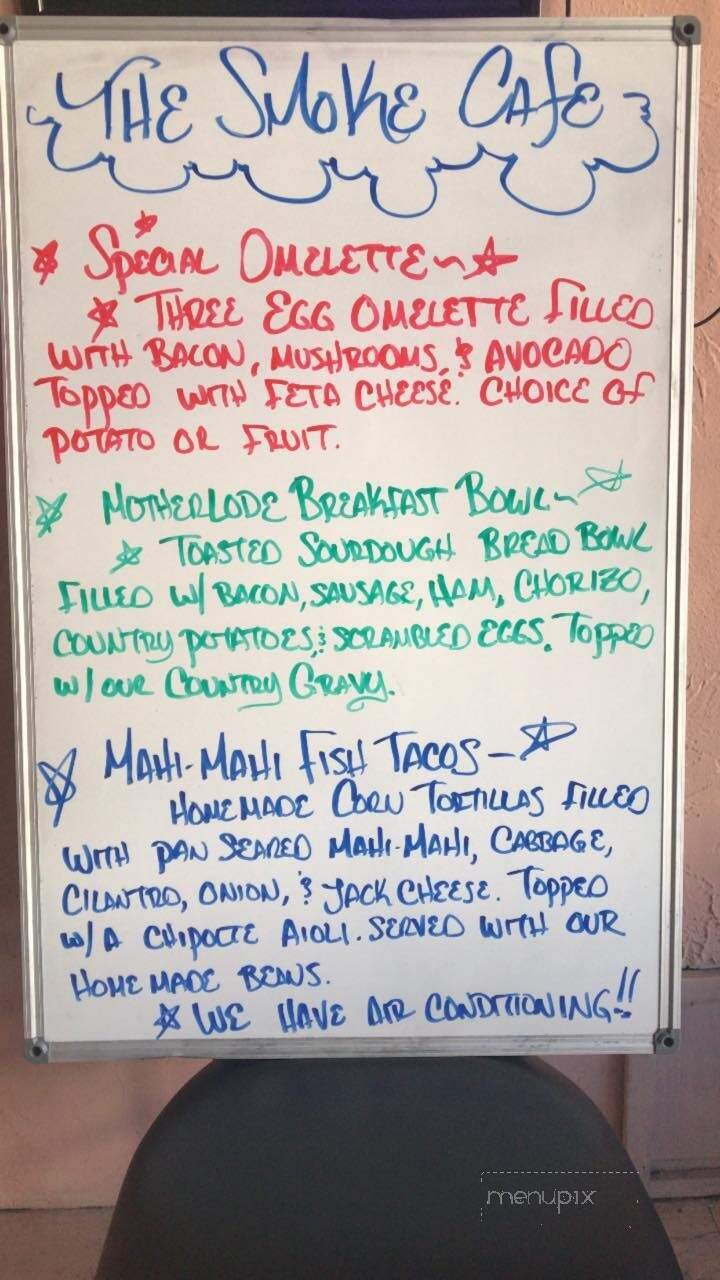 THE SMOKE CAFE
SPECIAL OMELETTE~
THREE EGG OMELETTE FILLED
WITH BACON, MUSHROOMS, & AVOCADO
TOPPED WITH FETA CHEESE. CHOICE OF
POTATO OR FRUIT.
MOTHERLODE BREAKFAST BOWL~
TOASTED SOURDOUGH BREAD BOWL
FILLED W/ BACON, SAUSAGE, HAM, CHORIZO,
COUNTRY POTATOES, & SCRAMBLED EGGS. TOPPED
W/ OUR COUNTRY GRAVY.
MAHI-MAHI FISH TACOS-
HOMEMADE CORN TORTILLAS FILLED
WITH PAN SEARED MAHI-MAHI, CABBAGE,
CILANTRO, ONION, & JACK CHEESE. TOPPED
W/ A CHIPOTLE AIOLI. SERVED WITH OUR
HOMEMADE BEANS.
WE HAVE AIR CONDITIONING!!
menupix